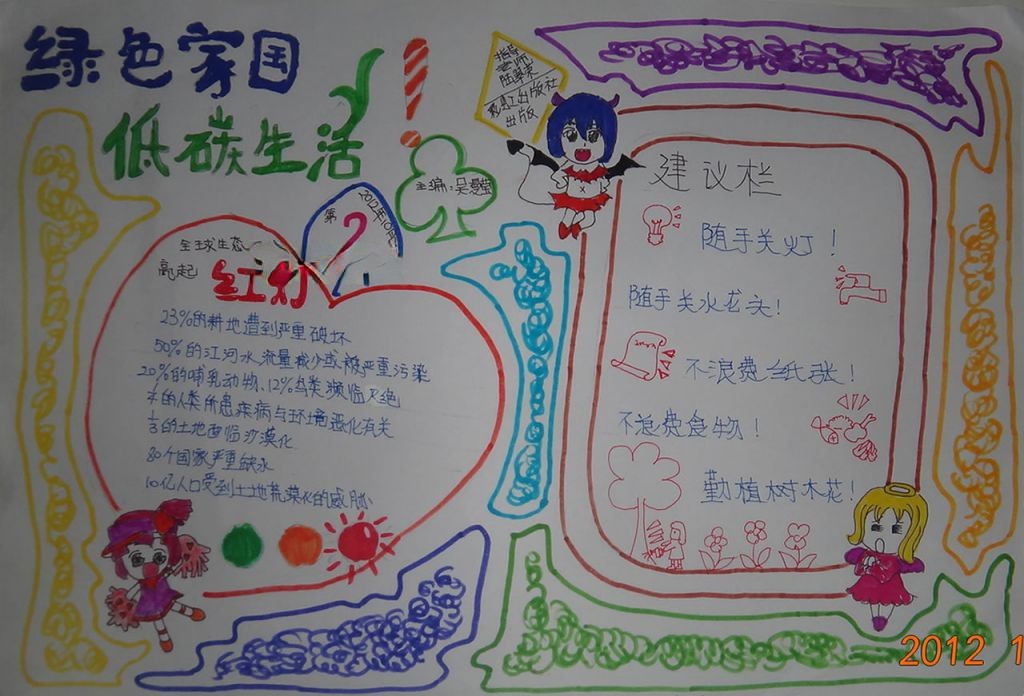 绿色家园
低碳生活！
指导
老师
出版社
出版
主编：吴
第2
2012年10月
全球生态
亮起
红灯
23%的耕地遭到严重破坏
50%的江河水流量减少或被严重污染
20%的哺乳动物、12%鸟类濒临灭绝
的人类所患疾病与环境恶化有关
的土地面临沙漠化
80个国家严重缺水
10亿人口受到土地荒漠化的威胁
建议栏
随手关灯！
随手关水龙头！
不浪费纸张！
不浪费食物！
勤植树木花！
2012 1